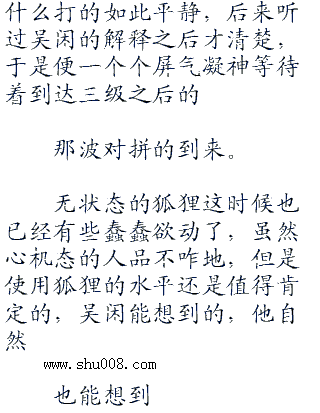 什么打的如此平静，后来听
过吴闲的解释之后才清楚，
于是便一个个屏气凝神等待
着到达三级之后的
那波对拼的到来。
无状态的狐狸这时候也
已经有些蠢蠢欲动了，虽然
心机态的人品不咋地，但是
使用狐狸的水平还是值得肯
定的，吴闲能想到的，他自
然
www.shu008.com
也能想到